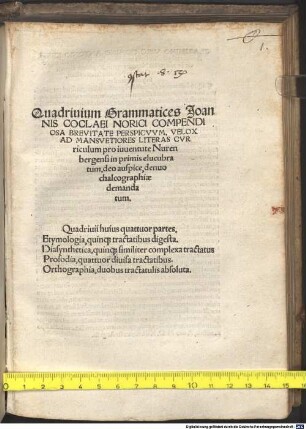 1.
Quadrivium Grammatices Joan
NIS COCLAEI NORICI COMPENDI
OSA BREVITATE PERSPICVVM, VELOX
AD MANSVETIORES LITERAS CVR
riculum pro iuuentute Nuren
bergensi in primis elucubra
tum, deo auspice, denuo
chalcographiæ
demanda
tum.
Quadriuii huius quattuor partes,
Etymologia, quinq; tractatibus digesta.
Diasynthetica, quinq; similiter complexa tractatus
Prosodia, quattuor diuisa tractatibus.
Orthographia, duobus tractatulis absoluta.
0 1 2 3 4 5 6 7 8 9 10 11 12 13 14 15